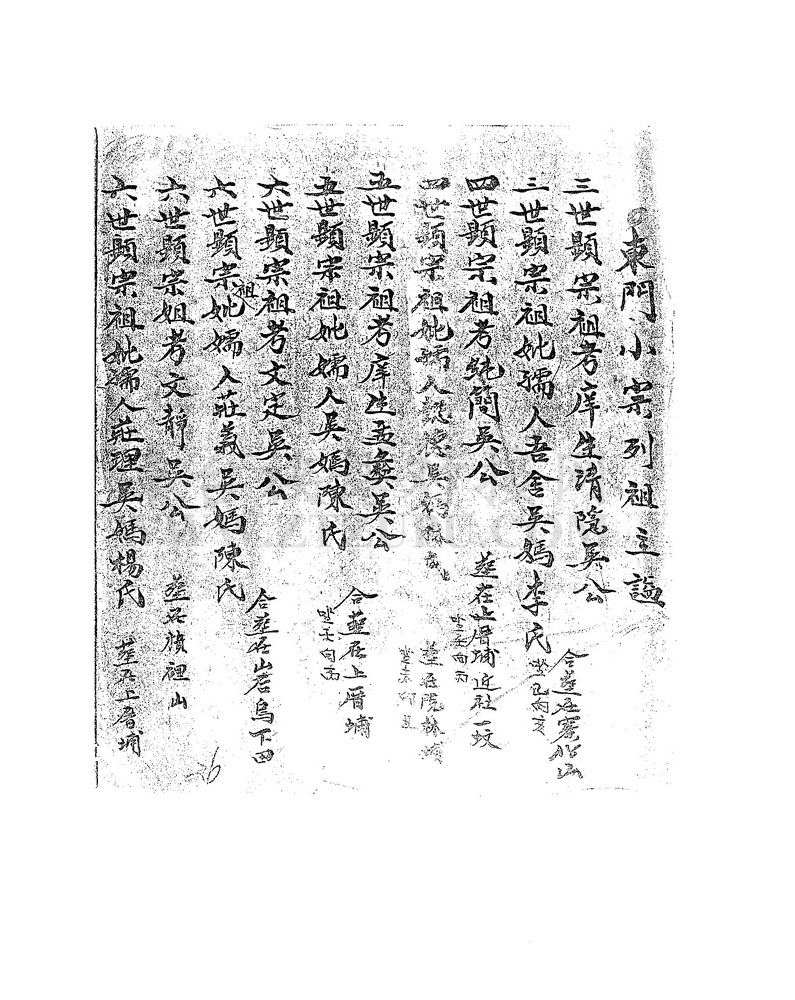 東門小宗列祖主謚
三世顯宗祖考庠生清隱吳公
三世顯宗祖妣孺人吾舍吳媽李氏
合塟在寨
坐巳向亥
四世顯宗祖考純簡吳公
塟在上厝埔近社一坟
坐壬向丙
四世顯宗祖妣孺人懿德吳媽林氏
塟在院林埔
五世顯宗祖考庠生孟彝吳公
五世顯宗祖妣孺人吳媽陳氏
合塟在上厝埔
坐壬向丙
六世顯宗祖考文定吳公
六世顯宗祖妣孺人莊義吳媽陳氏
合塟在山君烏下四
六世顯宗姐考文靜吳公
塟在 裡山
六世顯宗祖妣孺人莊理吳媽楊氏
塟在上厝埔
26